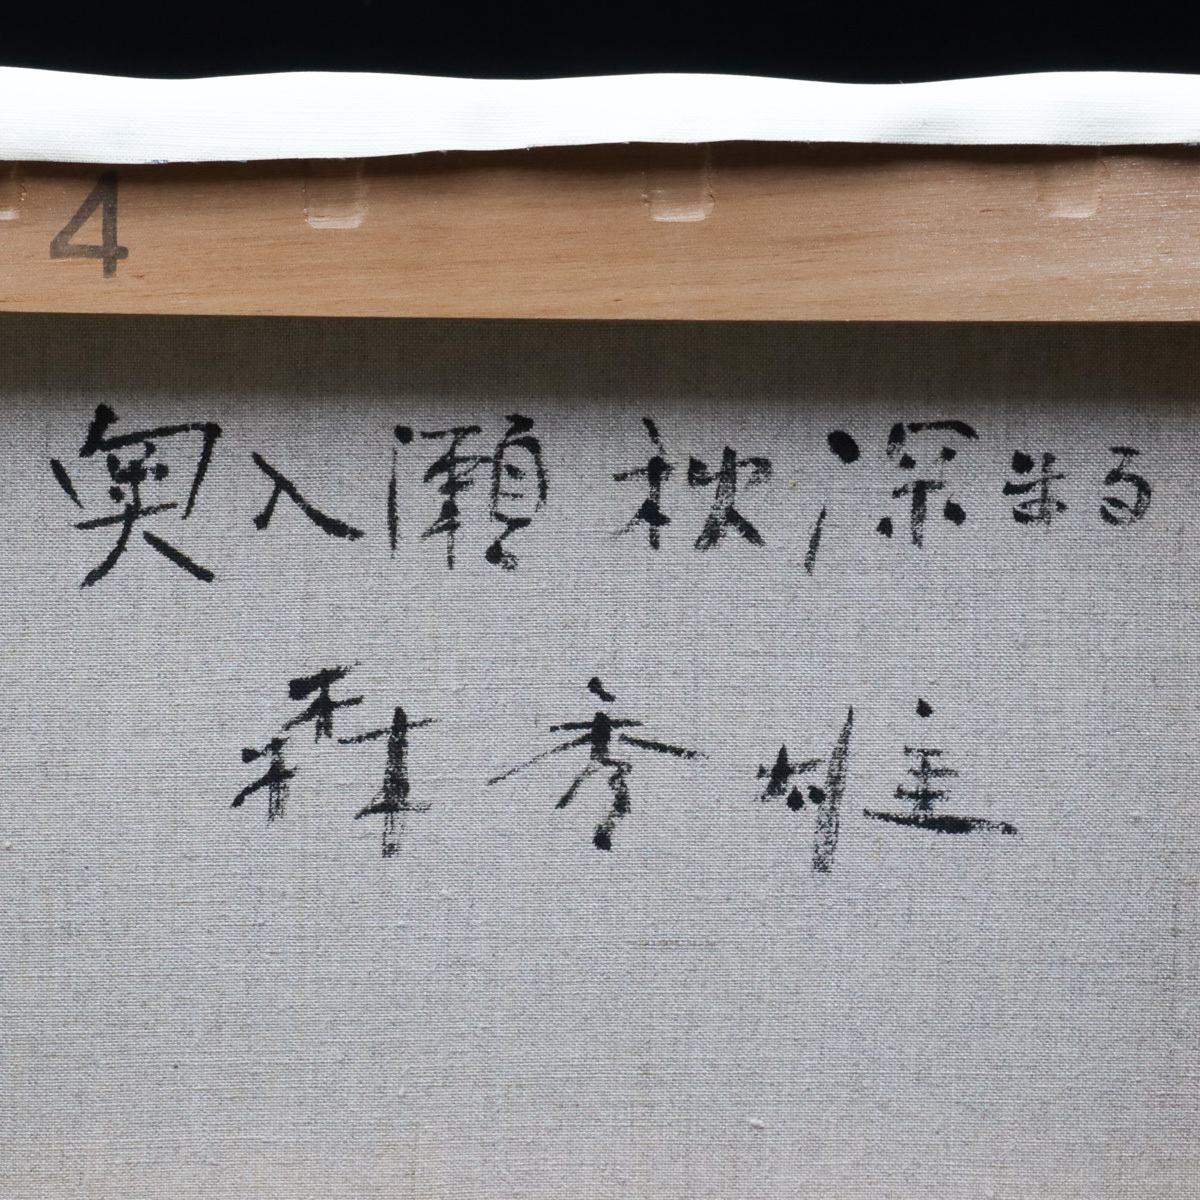 4
奥入瀬 秋深まる
森 秀雄